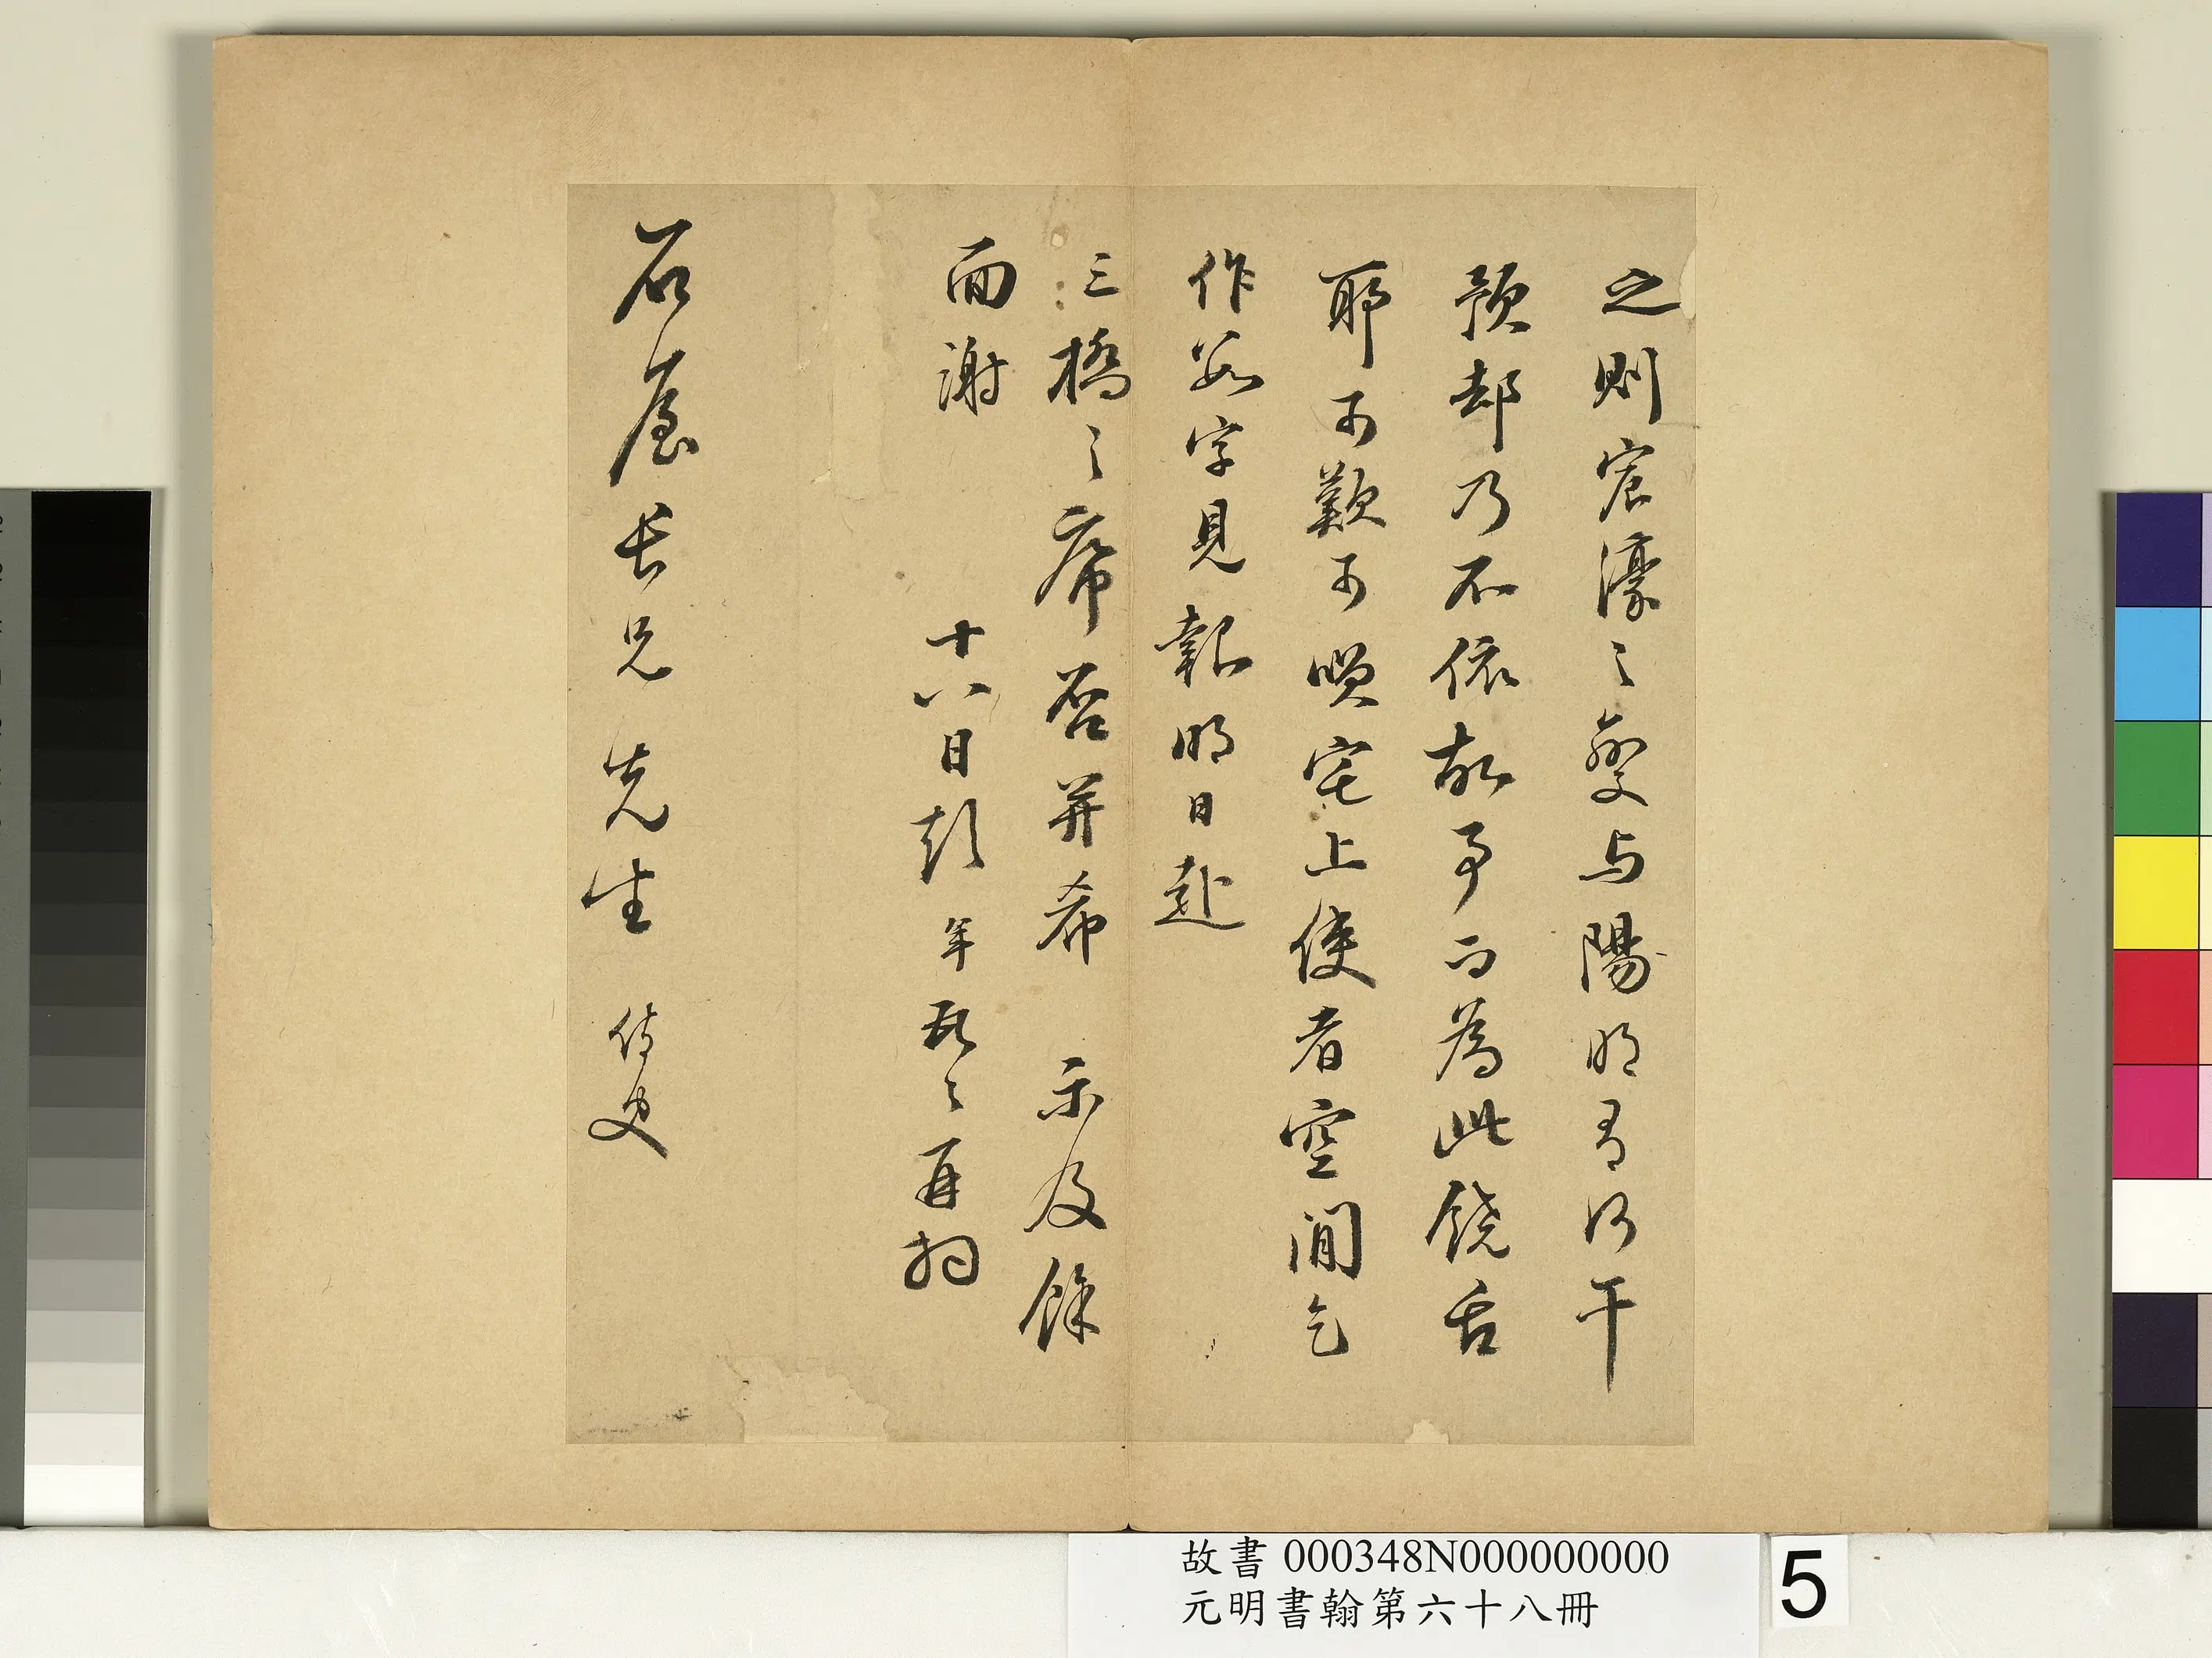 之則宸濠之變与陽明有何干
預却乃不依故事而為此饒舌
耶可歎可嘆宅上使者空閒乞
作數字見報明日赴
三橋之席否并希 示及餘
面謝
十八日彭年頓〻再拜
石屋長兄先生 侍史
故書000348N000000000
元明書翰第六十八冊
5